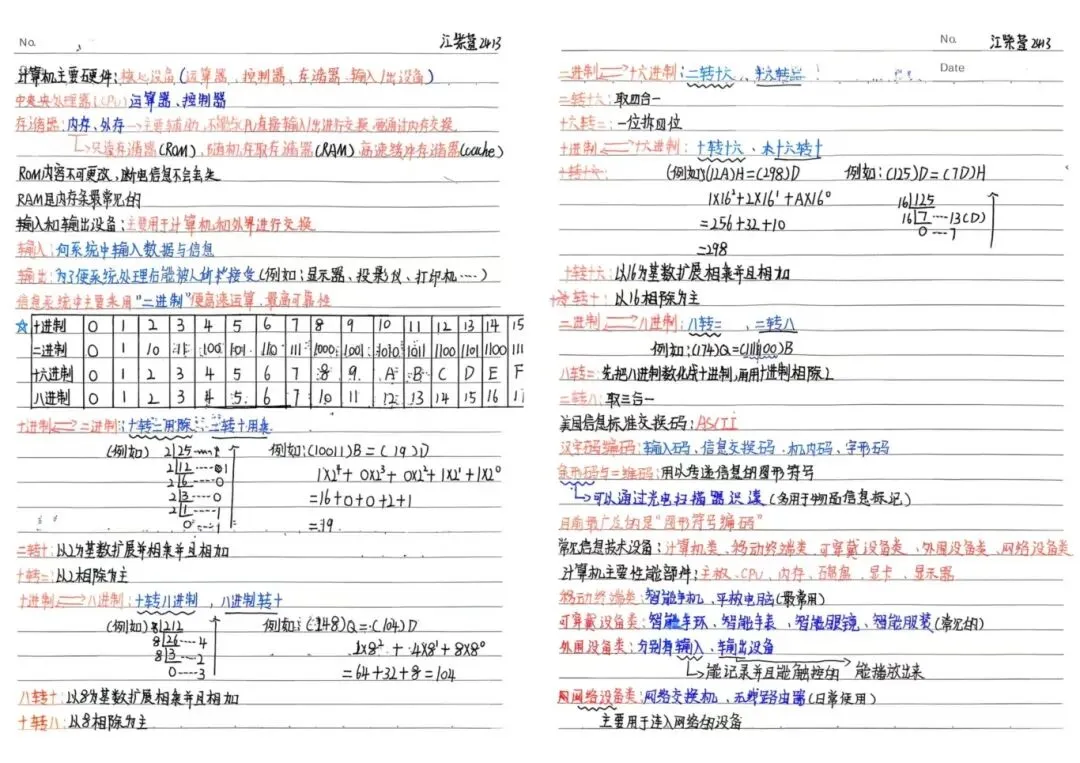 No.
江紫萱2413
计算机主要硬件：核心设备（运算器、控制器、存储器、输入/出设备）
中央处理器（CPU）运算器、控制器
存储器：内存、外存→主要辅助，不能与CPU直接输入/出进行交换，要通过内存交换
→只读存储器（ROM），随机存取存储器（RAM）高速缓冲存储器（cache）
ROM内容不可更改，断电信息不会丢失
RAM是内存条最常见的
输入和输出设备：主要用于计算机和外界进行交换
输入：向系统中输入数据与信息
输出：为了便系统处理后能被人们接受（例如：显示器、投影仪、打印机……）
信息系统中主要采用“二进制”便高速运算，最高可靠性
☆ 十进制 0 1 2 3 4 5 6 7 8 9 10 11 12 13 14 15
二进制 0 1 10 11 100 101 110 111 1000 1001 1010 1011 1100 1101 1100 111
十六进制 0 1 2 3 4 5 6 7 8 9 A B C D E F
八进制 0 1 2 3 4 5 6 7 10 11 12 13 14 15 16 1
十进制⇌二进制：十转二用除，二转十用乘
（例如） 2 25 ……1 例如：（10011）B=（19）D
2 12 ……0 1X2⁴+0X2³+0X2²+1X2¹+1X2⁰
2 6 ……0 =16+0+0+2+1
2 3 ……0 =19
2 1 ……1
0 ……1
二转十：以2为基数扩展并相乘并且相加
十转二：以2相除为主
十进制⇌八进制：十转八进制，八进制转十
（例如） 8 212 例如：（148）Q=（104）D
8 26 ……4 1X8²+4X8¹+8X8⁰
8 3 ……2 =64+32+8=104
0 ……3
八转十：以8为基数扩展相乘并且相加
十转八：以8相除为主
No.
江紫萱2413
Date
二进制⇌十六进制：二转十六，十六转二
二转十六：取四合一
十六转二：一位拆四位
十进制⇌十六进制：十转十六、十六转十
十转十六： （例如）（12A）H=（298）D 例如：（125）D=（7D）H
1X16²+2X16¹+AX16⁰ 16 125
=256+32+10 16 7 ……13（D）
=298 0 ……7
十转十六：以16为基数扩展相乘并且相加
十六转十：以16相除为主
二进制⇌八进制：八转二，二转八
例如：（174）Q=（1111100）B
八转二：先把八进制数化成十进制，再用十进制相除2
二转八：取三合一
美国信息标准交换码：ASCII
汉字码编码：输入码、信息交换码、机内码、字形码
条形码与二维码：用以传递信息的图形符号
→可以通过光电扫描器识读（多用于物品信息标记）
目前最广泛的是“图形符号编码”
常见信息技术设备：计算机类、移动终端类、可穿戴设备类、外围设备类、网络设备类
计算机主要性能部件：主板、CPU、内存、硬盘、显卡、显示器
移动终端类：智能手机、平板电脑（最常用）
可穿戴设备类：智能手环、智能手表、智能眼镜、智能服装（常见的）
外围设备类：分别有输入、输出设备
→能记录并且能触控的 能播放出来
网络设备类：网络交换机、无线路由器（日常使用）
主要用于连入网络的设备